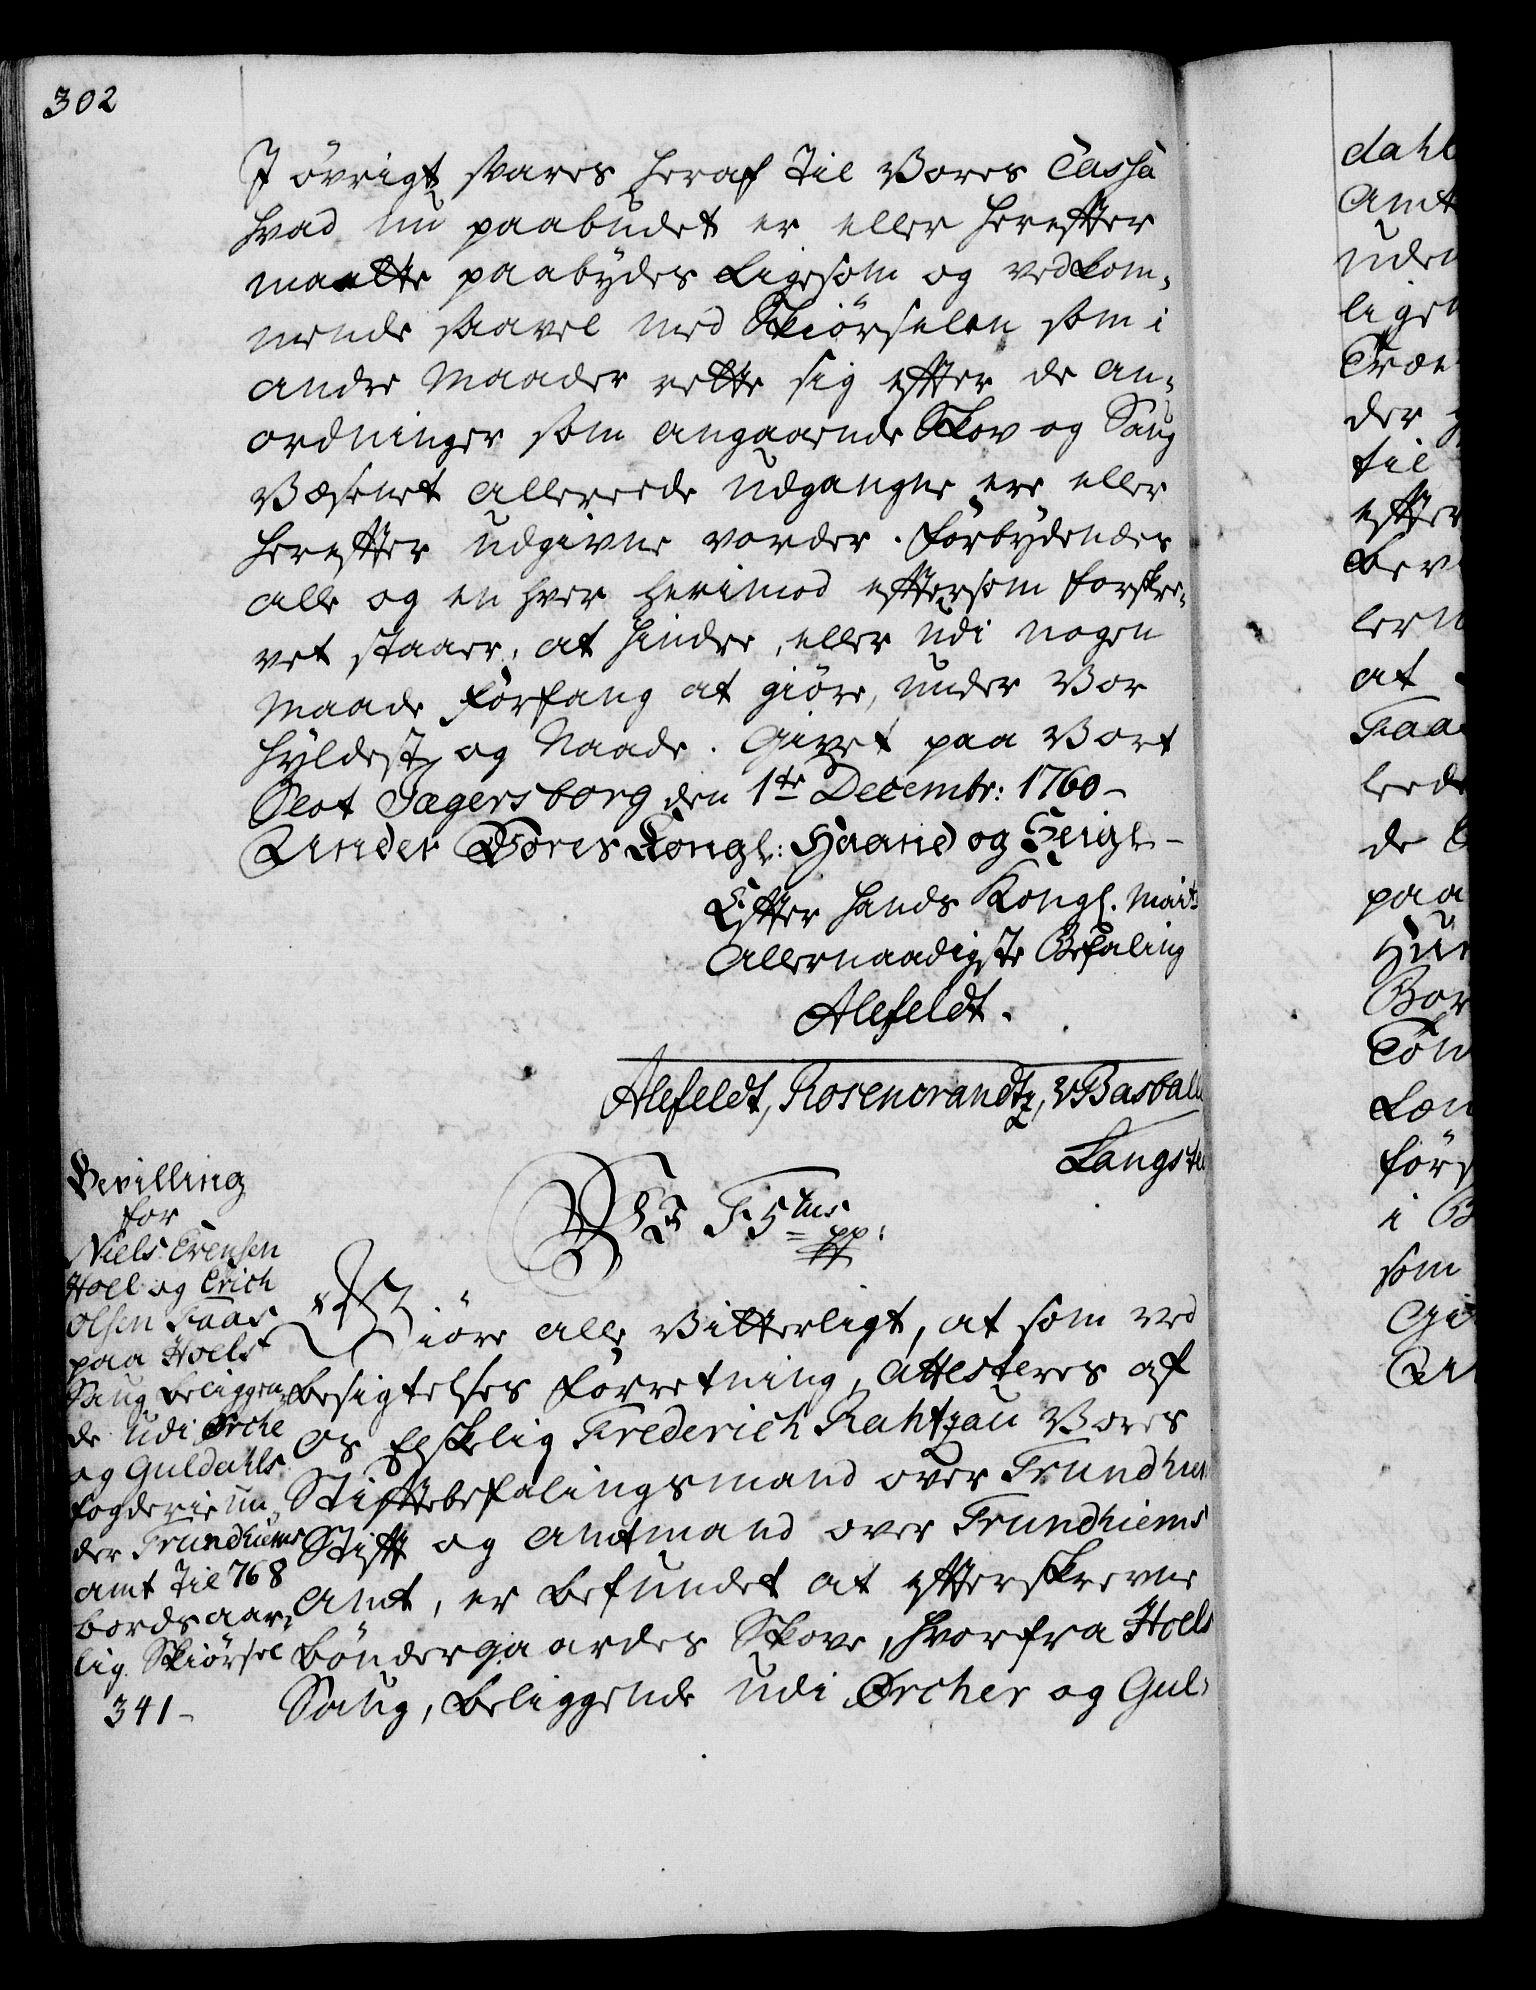 302
I övrigt svares heraf til Vores Cassa
hvad nu paabudet er eller herefter
maatte paabydes Ligesom og vedkom¬
mende saavel med Skiörselen som i
andre Maader rette sig efter de An¬
ordninger som angaaende Skov og Saug
Væsenet allereede udgangne ere eller
herefter udgivne vorder. Forbydendes
alle og en hver herimod eftersom forskre¬
vet staaer, at hindre, eller udi nogen
Maade Forfang at giöre, under Vor
Hyldest og Naade. Givet paa Vort
Slot Jægersborg den 1te Decembr: 1760 –
Under Vores Kongl: Haand og Seigl –
Efter Hands Kongl. Maits
Allernaadigste Befaling
Alefeldt.
Alefeldt, Rosencrandtz, v Basball
Langste
Bevilling
for
Niels Evensen
Hoel og Erich
Olsen Faar
paa Hoels
Saug beliggen¬
de udi Orche
og Guldahls
fogderie un¬
der Trundhiems
amt til 768
bords aar¬
lig Skiörsel
341 –
WE F 5tus pp:
Giöre alle Vitterligt, at som ved
besigtelses Forretning, attesteres af
Os Elskelig Frederich Rahtzau Vores
Stiftbefalingsmand over Trundhiems
Stift og Amtmand over Trundhiems
Amt, er befundet at efterskrevne
Böndergaardes Skove, hvorfra Hoels
Saug, beliggende udi Orcher og Gul¬
dahl
Amt
uden
lige
Træ
der
til
efter
Bev
lern
at
Faa
leede
de
paa
Hu
Bor
Tön
Læn
för
i B
som
Gi
Un